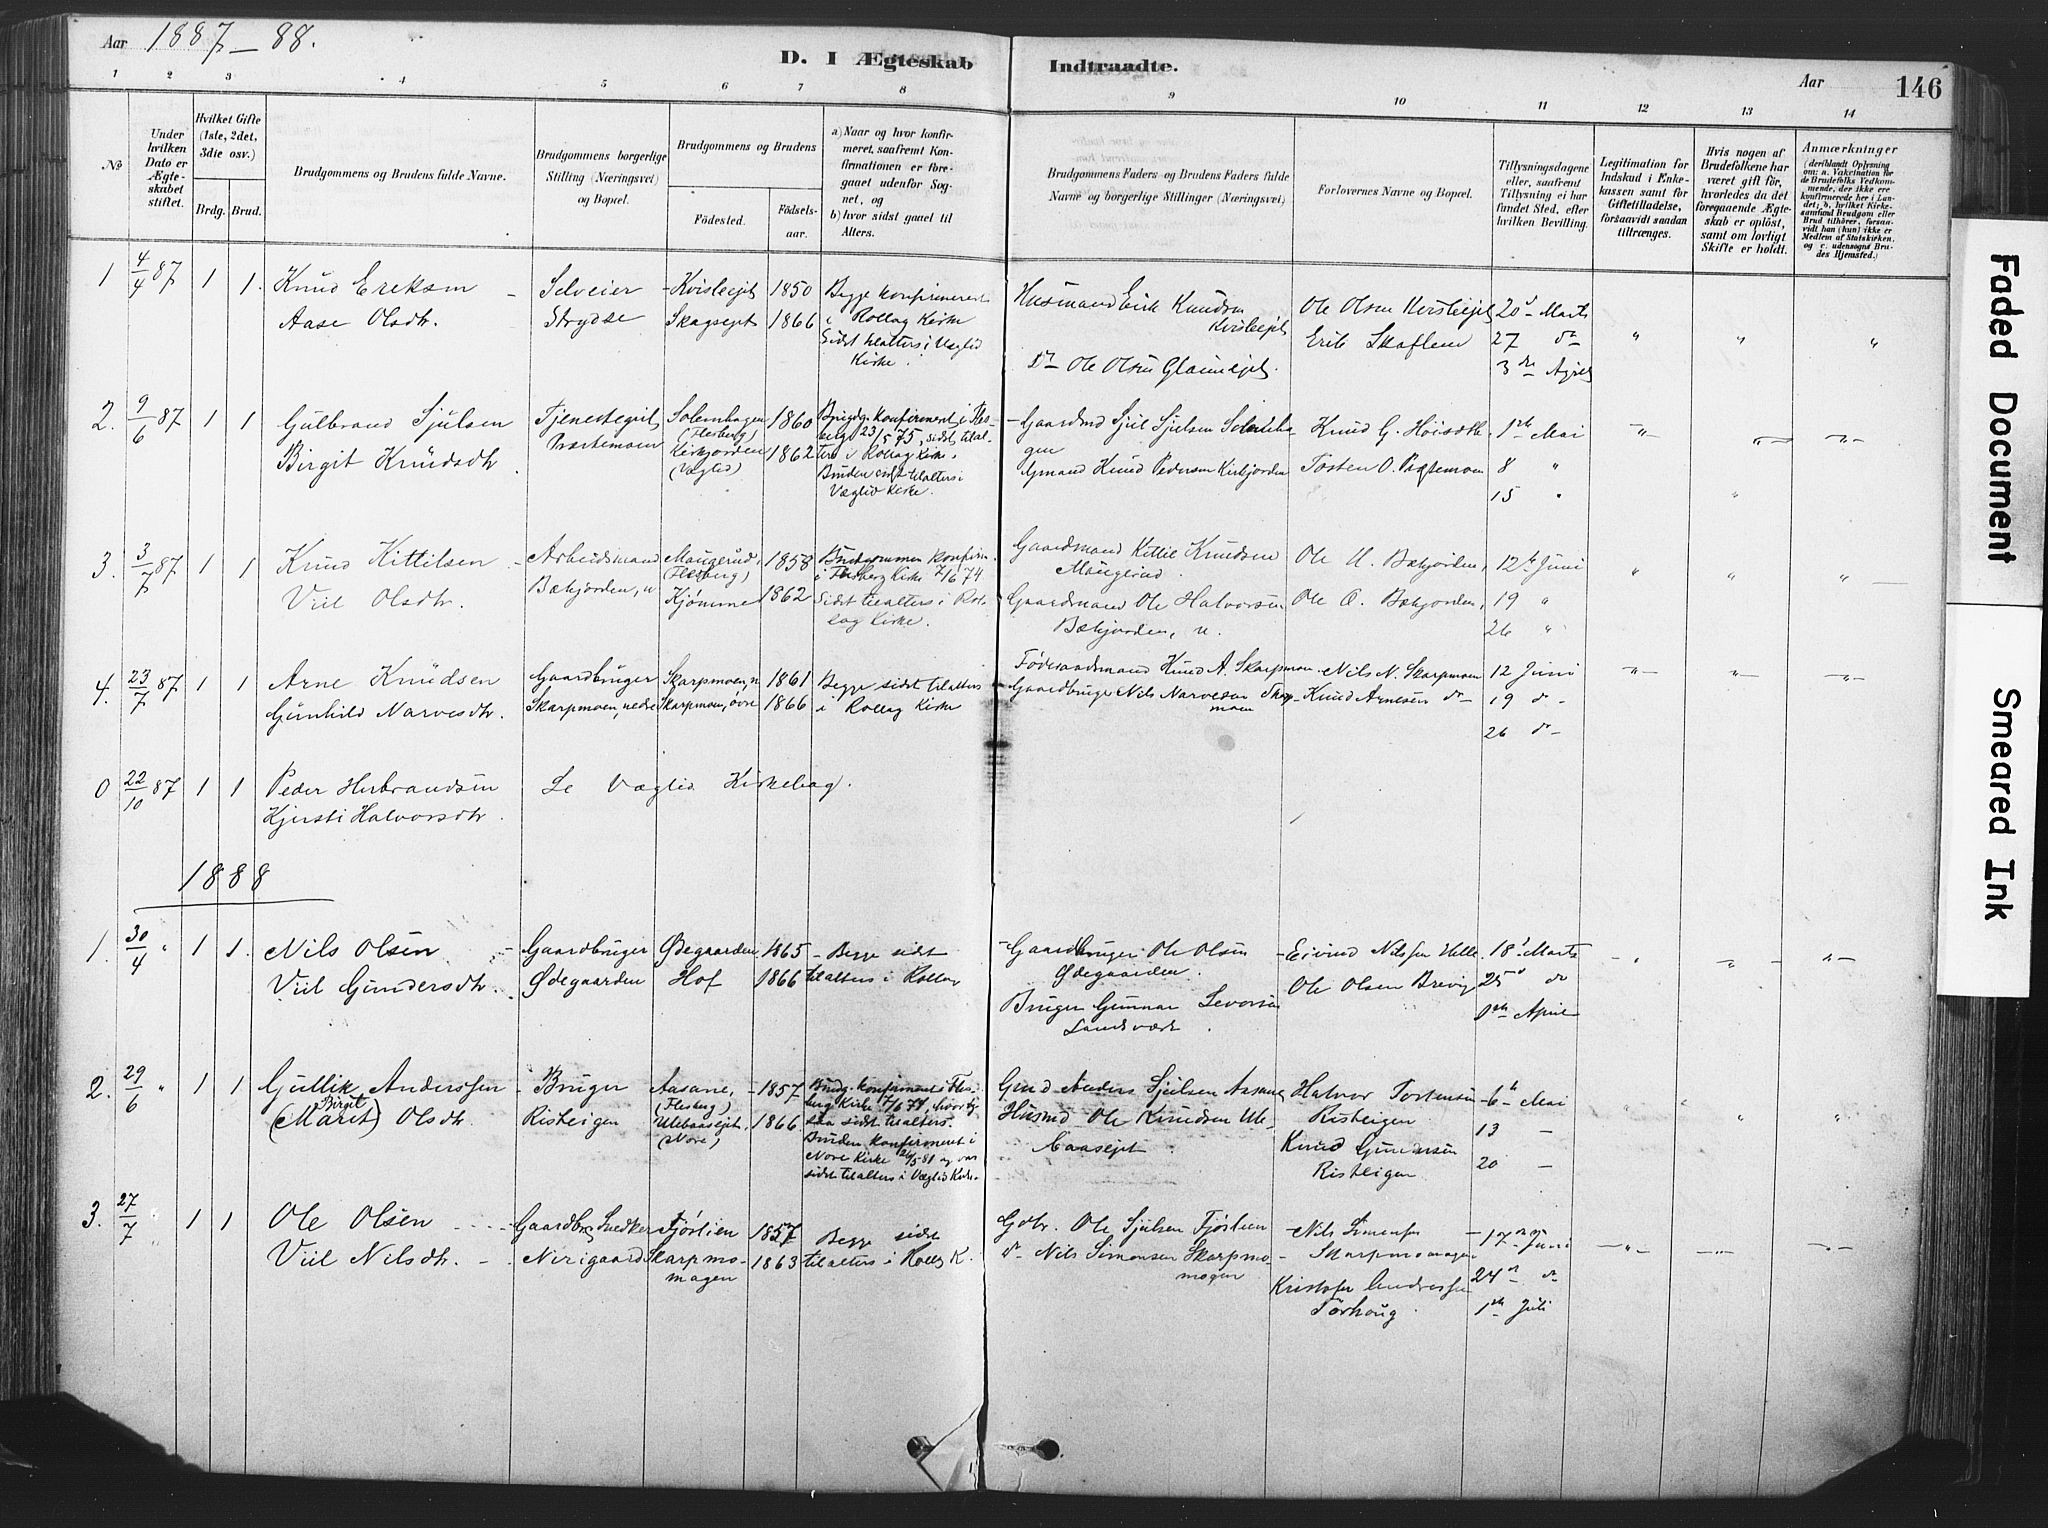 Aar 1887–88.
D. I Ægteskab Indtraadte.
Aar 146
1 2 3 4 5 6 7 8 9 10 11 12 13 14
No
Under hvilken Dato er Ægteskabet stiftet.
Hvilket Gifte (1ste, 2det, 3die osv.)
Brdg. Brud.
Brudgommens og Brudens fulde Navne.
Brudgommens borgerlige Stilling (Næringsvei) og Bopæl.
Brudgommens og Brudens
Födested.
Födsels-aar.
a) Naar og hvor konfirmeret, saafremt Konfirmationen er foregaaet udenfor Sognet, og
b) hvor sidst gaaet til Alters.
Brudgommens Faders og Brudens Faders fulde Navne og borgerlige Stillinger (Næringsvei)
Forlovernes Navne og Bopæl.
Tillysningsdagene eller, saafremt Tillysning ei har fundet Sted, efter hvilken Bevilling.
Legitimation for Indskud i Enkekassen samt for Giftetilladelse, forsaavidt saadan tiltrænges.
Hvis nogen af Brudefolkene har været gift för, hvorledes da det foregaaende Ægteskab er oplöst, samt om lovligt Skifte er holdt.
Anmærkninger
(deriblandt Oplysning om: a. Vakcination for de Brudefolks Vedkommende, der ikke ere konfirmerede her i Landet; b. hvilket Kirkesamfund Brudgom eller Brud tilhörer, forsaavidt han (hun) ikke er Medlem af Statskirken, og c. udensogns Brudes Hjemsted.)
1 4/4 87 1 1. Knud Eriksen – Selveier – 1850 Begge konfirmeret
Aase Olsdtr. Skagsejet 1866 i Rollag Kirke
Sidst tilalters i Væglid
Kirke.
Husmand Erik Knudsen
Dr. Ole Olsen
Ole Olsen
Erik
20d Marts
27 do
3die April
2. 9/6 87 1 1 Gulbrand Sjulsen Tjenestegut 1860 Brudg. konfirmeret i Flesberg 23/5 75, sidst tilalters i Rollag Kirke.
Birgit Knudsdtr. (Flesberg) Kirkjorden (Væglid) 1862
Bruden sidst tilalters i
Væglid Kirke.
Gaardmd Sjul Sjulsen
Gmand Knud Pedersen Kirkjorden
Knud G.
Tosten O.
1ste Mai
8 "
15 "
3. 3/7 87 1 1 Knud Kittilsen – Arbeidsmand Maugerud, (Flesberg) 1858 Brudgommen konfirm. i Flesberg Kirke 7/6 74
Viil Olsdtr. Bækjorden, n Kjømme 1862 Sidst tilalters i Rollag Kirke.
Gaardmand Kittil Knudsen
Maugerud.
Gaardmand Ole Halvorsen
Bækjorden, n.
Ole H. Bækjorden,
Ole O. Bækjorden,
12te Juni
19 "
26 "
4. 23/7 87 1 1 Arne Knudsen Gaardbruger Skarpmoen, n 1861 Begge sidst tilalters
Gunhild Narvesdtr. Skarpmoen, nedre Skarpmoen, øvre 1866 i Rollag Kirke
Føderaadsmand Knud A. Skarpmoen
Gaardbruger Nils Narvesen Skarpmoen
Nils N. Skarpmoen
Knud Arnesen do
12 Juni
19 do
26 do
0 22/10 87 1 1 Peder Herbrandsen Se Væglid Kirkebog.
Kjersti Halvorsdtr.
1888
1. 30/4 " 1 1. Nils Olsen – Gaardbruger Ødegaarden 1865 – Begge sidst
Viil Gundersdtr. Ødegaarden Hof 1866 tilalters i Rollag
Gaardbruger Ole Olsen
Ødegaarden.
Bruger Gunnar Levorsen
Landsværk.
Eivind Nilssen Velle
Ole Olsen Brevig
18' Marts
25d do
1ste April
2. 29/6 " 1 1 Gullik Anderssen – Bruger Aasane, (Flesberg) 1857 Brudg. konfirmeret i Flesberg Kirke 7/6 74, hvor
Birgit
(Marit) Olsdtr. Risteigen (Nore) 1866. saa sidst tilalters.
Bruden konfirmeret i
Nore Kirke og var
sidst tilalters i Væglid Kirke.
Gmd Anders Sjulsen Aasane
Husmd Ole Knudsen
Halvor Torstensen
Risteigen
Knud Gundersen
Risteigen
6te Mai
13 –
20 –
3. 27/7 " 1 1 Ole Olsen Gaardbr. Snedker Fjørlien 1857 Begge sidst
Viil Nilsdtr. – Nirigaard Skarpmomagen 1863 tilalters i Rollg K.
Gdbr. Ole Sjulsen
do Nils Simensen Skarpmomogen
Nils Simensen
Skarpmomogen
Kristofer Andressen
Tørhoug.
17de Juni
24d do
1ste Juli
Faded Document
Smeared Ink